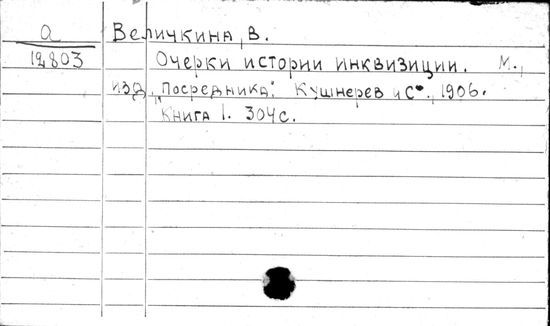 а Величкина, В.
12803 Очерки истории инквизиции. М.,
изд. "Посредника". Кушнерев и С°., 1906.
Книга 1. 304 с.